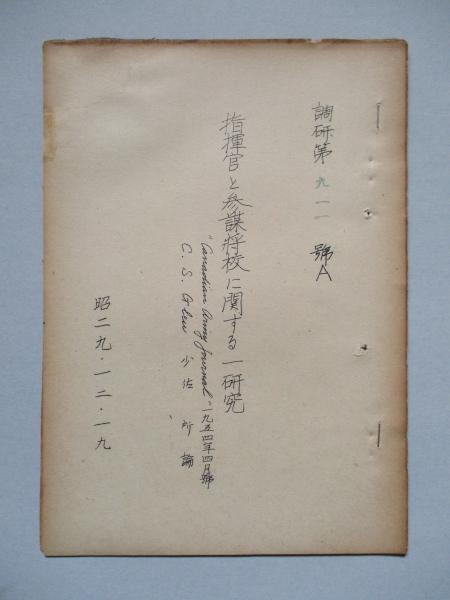 調研第九一一號A
指揮官と参謀将校に関する一研究
"Canadian Army Journal" 一九五四年四月號
C. S. 少佐所論
昭二九・一二・一九